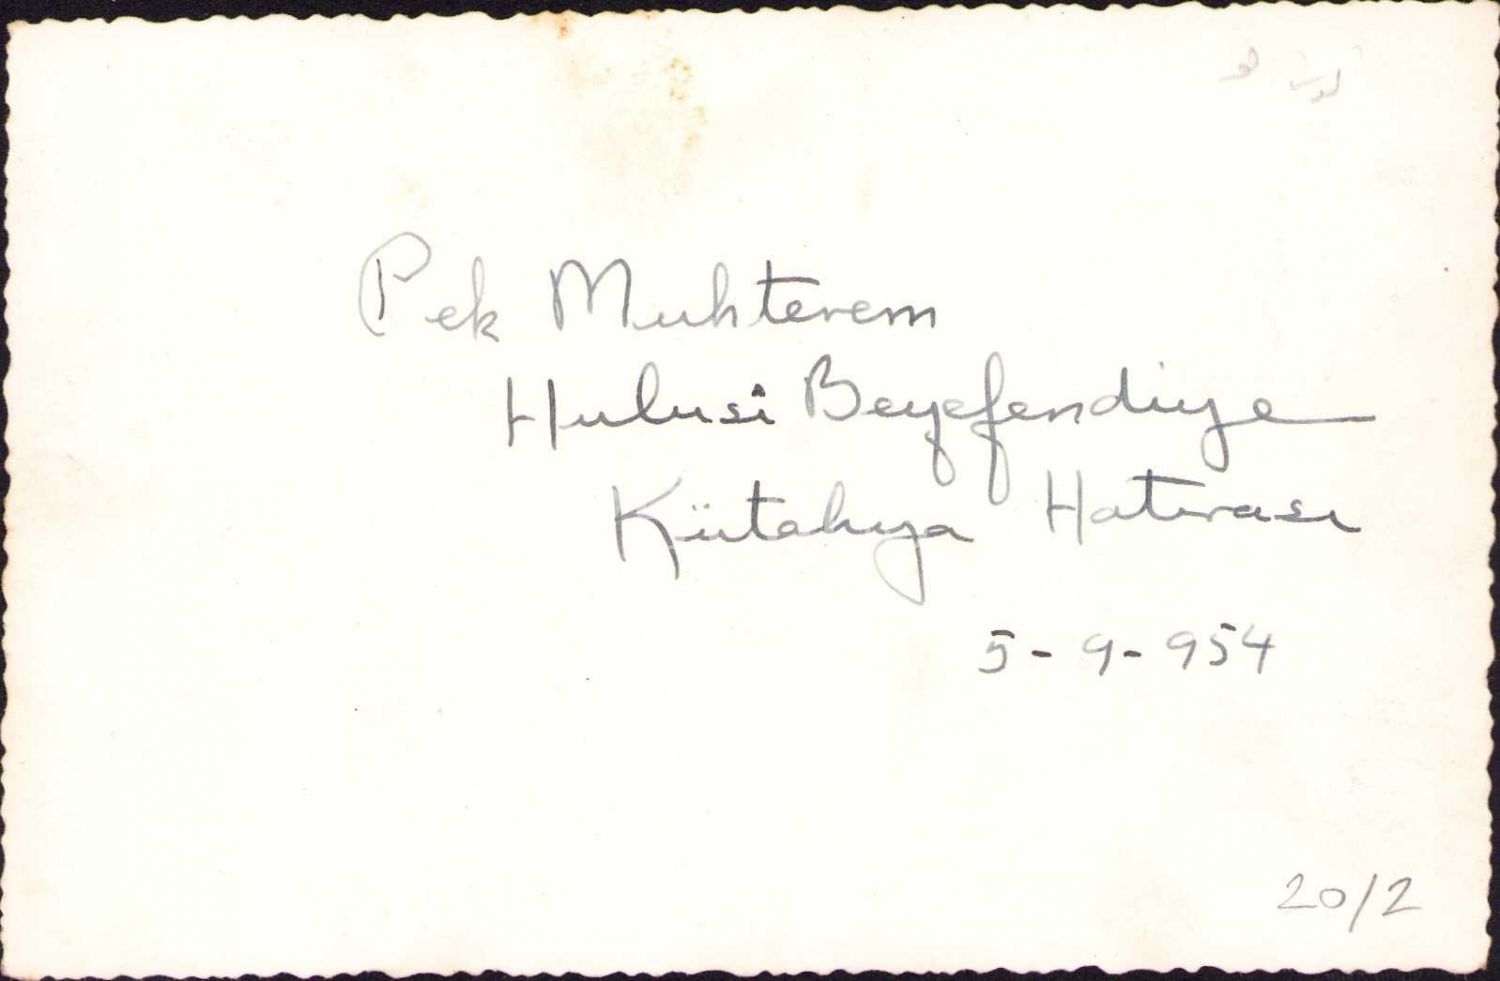 Pek Muhterem
Hulusi Beyefendiye
Kütahya Hatırası
5-9-954
20/2